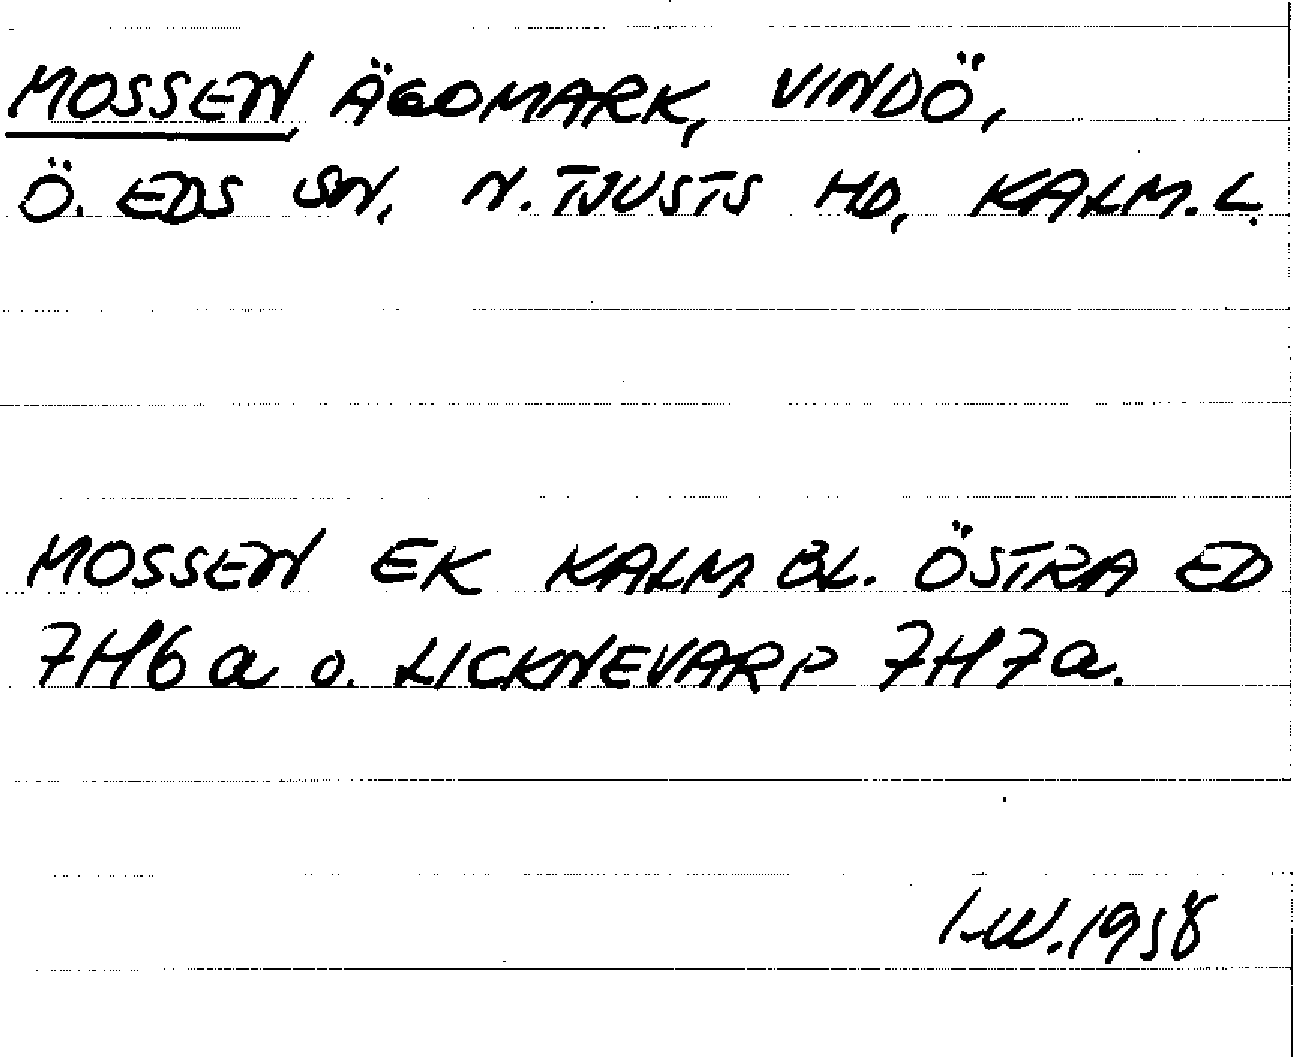 MOSSEN, ÄGOMARK, VINDÖ,
Ö. EDS SN, N. TJUSTS HD, KALM. L.
MOSSEN EK KALM. BL. ÖSTRA ED
7H6a o. LICKNEVARP 7H7a.
1958